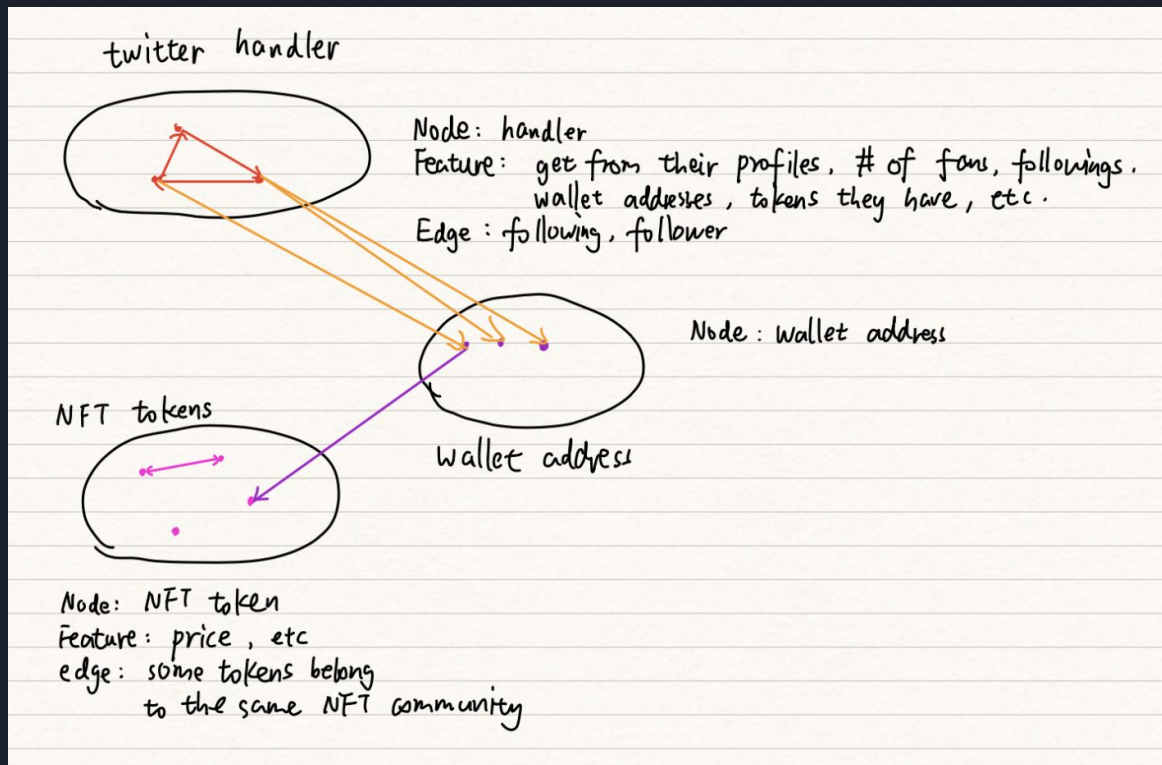 twitter handler
Node: handler
Feature: get from their profiles, # of fans, followings.
wallet addresses, tokens they have, etc.
Edge: following, follower
Node: wallet address
NFT tokens
wallet address
Node: NFT token
Feature: price, etc
edge: some tokens belong
to the same NFT community